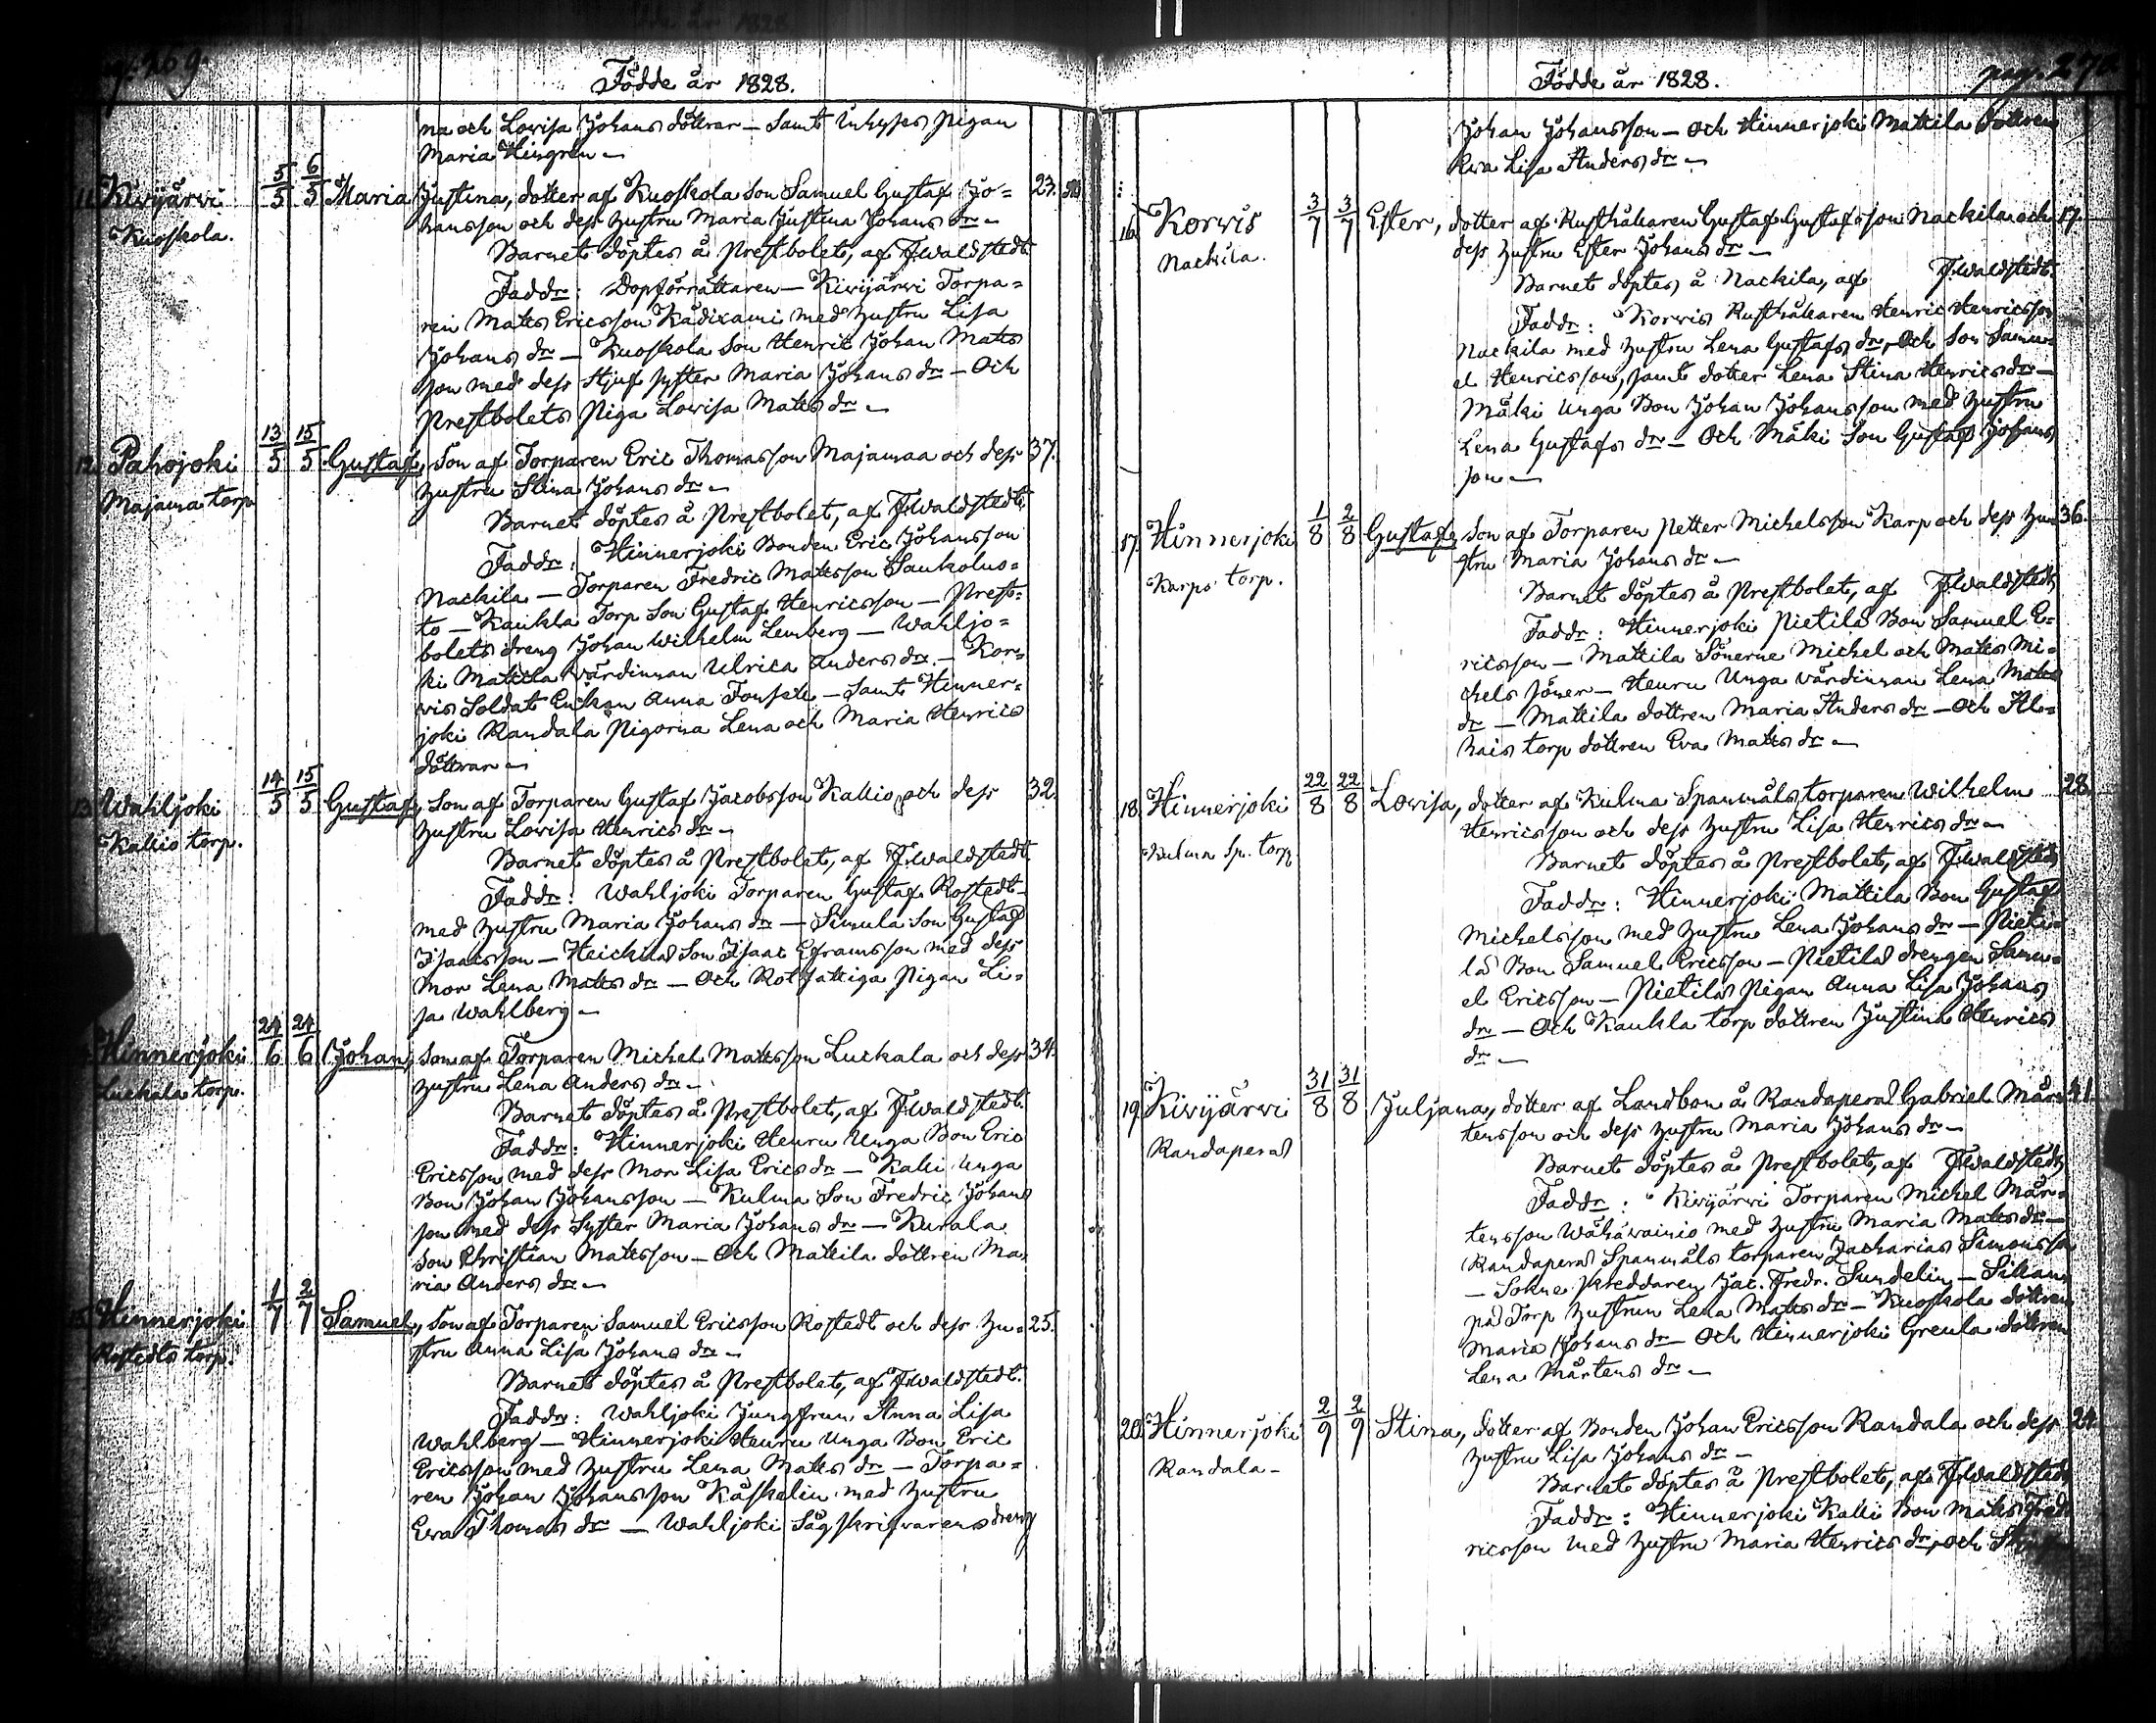 pag. 269.
Födde år 1828.
na och Lovisa Johans döttrar — Samt Inhyses pigan
Maria Hingren —
11. Kivijärvi 5/5 6/5 Maria Justina, dotter af Kuoskola Son Samuel Gustaf Jo= 23.
Kuoskola. hansson och dess hustru Maria Justina Johans dr —
Barnet döptes å Prestbolet, af F. Waldstedt.
Faddr: Dopförrättaren — Kivijärvi Torpa=
ren Matts Ericsson Kadixami med hustru Lisa
Johans dr — Kuoskola Son Henric Johan Matts
son med dess Stjuf syster Maria Johans dr — Och
Prestbolets Piga Lovisa Matts dr —
12. Pahojoki 13/5 15/5 Gustaf, Son af Torparen Eric Thomasson Majamaa och dess 37.
Majama torp hustru Stina Johans dr —
Barnet döptes å Prestbolet, af F. Waldstedt.
Faddr: Hinnerjoki Bonden Eric Johansson
Nackila — Torparen Fredric Mattsson Saukoluo=
to — Kaukla Torp Son Gustaf Henricsson — Prest=
bolets dreng Johan Wilhelm Lemberg — Wahljo=
ki Mattila värdinnan Ulrica Anders dr — Kor=
vis Soldat Enkan Anna Fonsell — Samt Hinner=
joki Randala Pigorna Lena och Maria Henrics
döttrar —
13. Wahljoki 14/5 15/5 Gustaf, Son af Torparen Gustaf Jacobsson Kallio och dess 32.
Kallio torp. hustru Lovisa Henrics dr —
Barnet döptes å Prestbolet, af F. Waldstedt.
Faddr: Wahljoki Torparen Gustaf Rostedt
med hustru Maria Johans dr — Simula Son Gustaf
Isaacsson — Heickilä Son Isaac Eframsson med dess
Mor Lena Matts dr — Och Rotfattiga Pigan Li=
sa Wahlberg —
Hinnerjoki 24/6 24/6 Johan, Son af Torparen Michel Mattsson Luckala och dess 34.
Luckala torp. hustru Lena Anders dr —
Barnet döptes å Prestbolet, af F. Waldstedt.
Faddr: Hinnerjoki Heuru Unga Bon Eric
Ericsson med dess Mor Lisa Erics dr — Kalli Unga
Bon Johan Johansson — Kulma Son Fredric Johans
son med dess Syster Maria Johans dr — Kurala
Son Christian Mattsson — Och Mattila dottren Ma
ria Anders dr —
15. Hinnerjoki 1/7 2/7 Samuel, Son af Torparen Samuel Ericsson Rostedt och dess hu= 25.
Rostedts torp. stru Anna Lisa Johans dr —
Barnet döptes å Prestbolet, af F. Waldstedt.
Faddr: Wahljoki Jungfrun Anna Lisa
Wahlberg — Hinnerjoki Heuru Unga Bon Eric
Ericsson med hustru Lena Matts dr — Torpa=
ren Johan Johansson Käskelin med hustru
Eva Thomas dr — Wahljoki Sågskrifvarens dreng
Födde år 1828.
pag. 270
Johan Johansson — Och Hinnerjoki Mattila dottren
Eva Lisa Anders dr —
16. Korvis 3/7 3/7 Ester, dotter af Rusthållaren Gustaf Gustafsson Nackila och 17.
Nackila. dess hustru Ester Johans dr —
Barnet döptes å Nackila, af F. Waldstedt.
Faddr: Korvis Rusthållaren Henric Henricsson
Nackila med hustru Lena Gustafs dr, Och Son Samu=
el Henricsson, samt dotter Lena Stina Henrics dr —
Mäki Unga Bon Johan Johansson med hustru
Lena Gustafs dr — Och Mäki Son Gustaf Johans
son —
17. Hinnerjoki 1/8 2/8 Gustaf, Son af Torparen Petter Michelsson Karp och dess hu= 36.
Karps torp. stru Maria Johans dr —
Barnet döptes å Prestbolet, af F. Waldstedt
Faddr: Hinnerjoki Pietilä Bon Samuel E=
ricsson — Mattila Sönerne Michel och Matts Mi=
chels söner — Heuru Unga värdinnan Lena Matts
dr — Mattila dottren Maria Anders dr — Och Al=
hais torp dottren Eva Matts dr —
18. Hinnerjoki 22/8 22/8 Lovisa, dotter af Kulma Spannmåls torparen Wilhelm 28.
Kulma Sp. torp Henricsson och dess hustru Lisa Henrics dr —
Barnet döptes å Prestbolet, af F. Waldstedt
Faddr: Hinnerjoki Mattila Bon Gustaf
Michelsson med hustru Lena Johans dr — Pieti=
lä Bon Samuel Ericsson — Pietilä drengen Samu=
el Ericsson — Pietilä Pigan Anna Lisa Johans
dr — Och Kaukla torp dottren Justina Henrics
dr —
19. Kivijärvi 31/8 31/8 Juljana, dotter af Landbon å Randaperä Gabriel Mår= 41.
Randaperä tensson och dess hustru Maria Johans dr —
Barnet döptes å Prestbolet, af F. Waldstedt
Faddr: Kivijärvi Torparen Michel Mår=
tensson Wähäwainio med hustru Maria Matts dr —
Randaperä Spannmåls torparen Zacharias Simonsson
— Sokne skreddaren Jac. Fredr. Sundelin — Sikam
pä Torp hustrun Lena Matts dr — Kuoskola dottren
Maria Johans dr — Och Hinnerjoki Greula dottren
Lena Mårtens dr —
20. Hinnerjoki 2/9 2/9 Stina, dotter af Bonden Johan Ericsson Randala och dess 24.
Randala — hustru Lisa Johans dr —
Barnet döptes å Prestbolet, af F. Waldstedt
Faddr: Hinnerjoki Kalli Bon Matts Fred
ricsson med hustru Maria Henrics dr, och